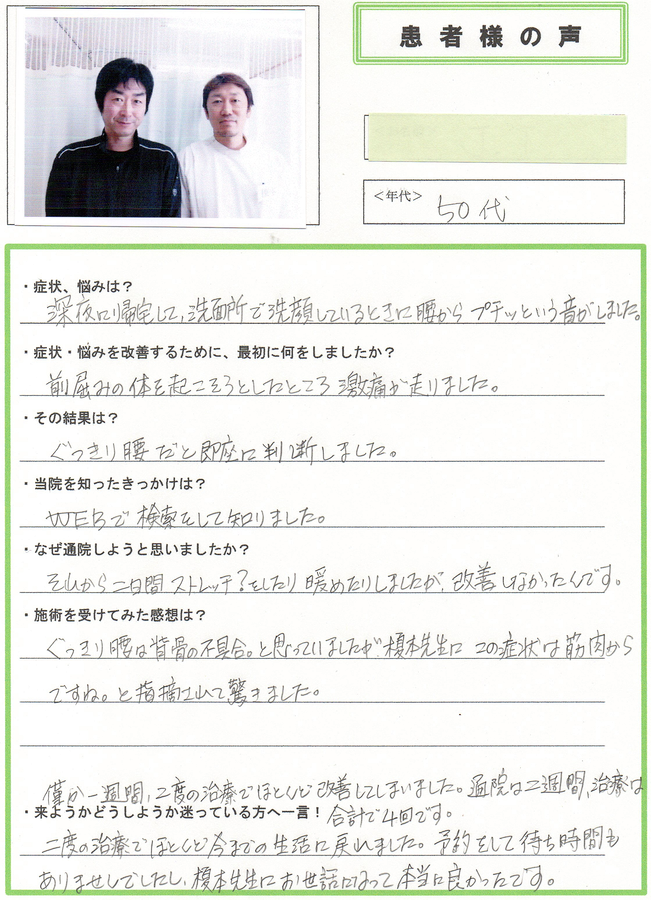 患者様の声
＜年代＞ 50代
・症状、悩みは？
深夜に帰宅して、洗面所で洗顔しているときに腰からプチッという音がしました。
・症状・悩みを改善するために、最初に何をしましたか？
前屈みの体を起こそうとしたところ激痛が走りました。
・その結果は？
ぐっきり腰だと即座に判断しました。
・当院を知ったきっかけは？
WEBで検索をして知りました。
・なぜ通院しようと思いましたか？
それから二日間ストレッチ？をしたり暖めたりしましたが、改善しなかったんです。
・施術を受けてみた感想は？
ぐっきり腰は背骨の不具合。と思っていましたが、榎本先生にこの症状は筋肉から
ですね。と指摘されて驚きました。
僅か一週間、二度の治療でほとんど改善してしまいました。通院は二週間、治療は
合計で4回です。
・来ようかどうしようか迷っている方へ一言！
二度の治療でほとんど今までの生活に戻れました。予約をして待ち時間も
ありませんでしたし、榎本先生にお世話になって本当に良かったです。